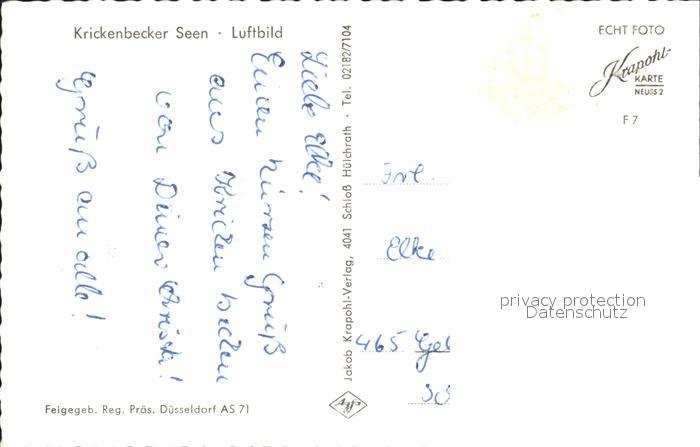 Krickenbecker Seen · Luftbild
Liebe Elke!
Einen kurzen Gruß
aus Kricken becken
von Deiner Christi!
Gruß an alle!
Feigegeb. Reg. Präs. Düsseldorf AS 71
Jakob Krapohl-Verlag, 4041 Schloß Hülchrath · Tel. 02182/7104
Agfa
ECHT FOTO
Krapohl-
KARTE
NEUSS 2
F 7
Frl.
Elke
465 Gel
privacy protection
Datenschutz